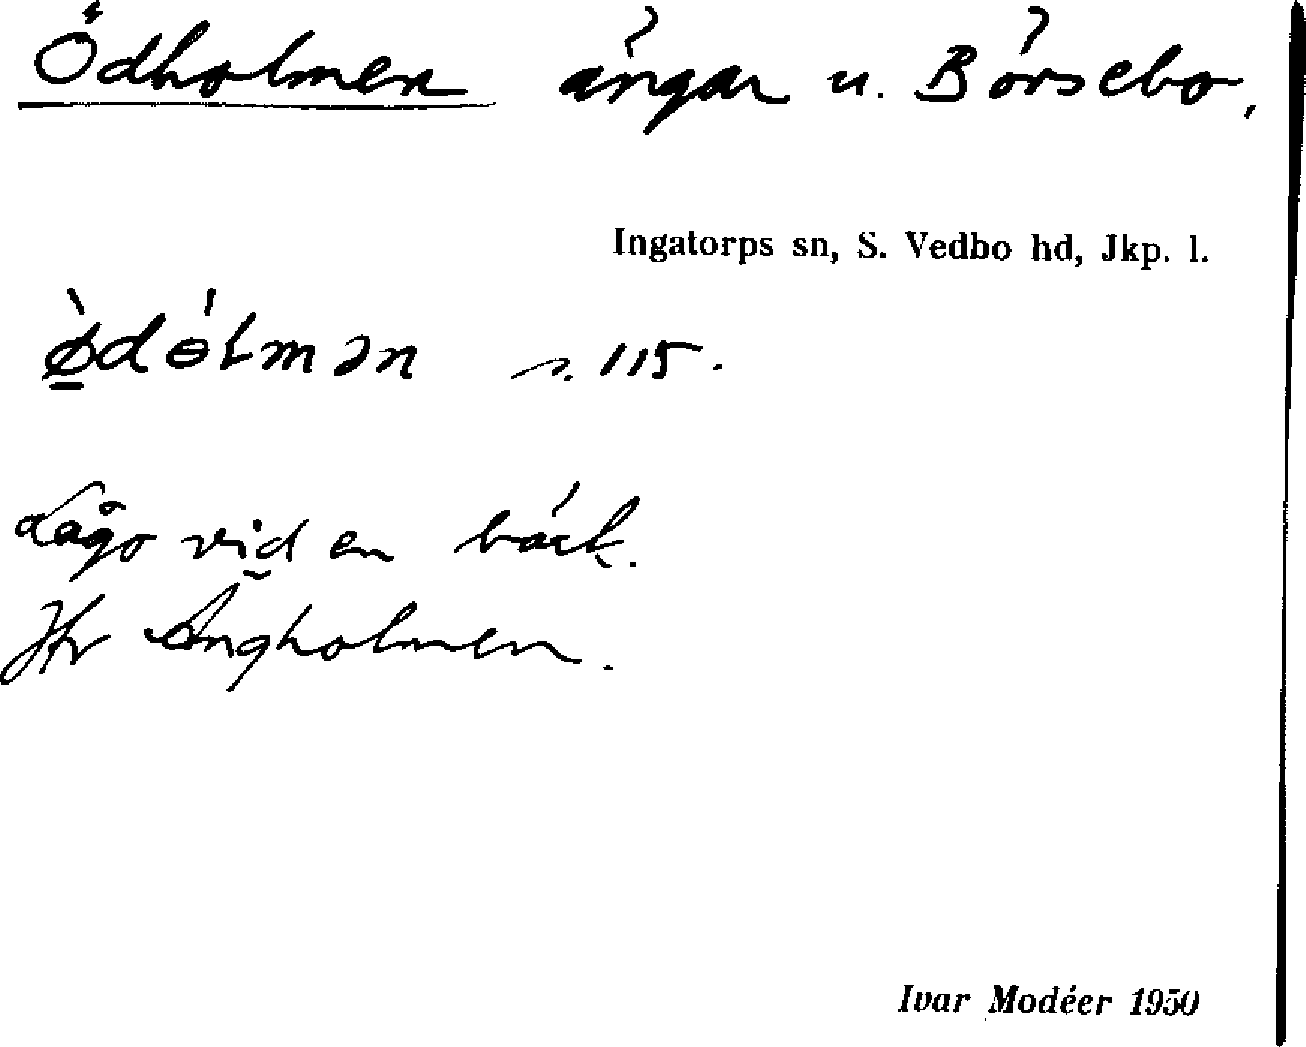 Ödholmen ängar u. Börsebo,
Ingatorps sn, S. Vedbo hd, Jkp. l.
ø̱̀dɵ́lmən s. 115.
Lågo vid en bäck.
Jfr Ängholmen.
Ivar Modéer 1950